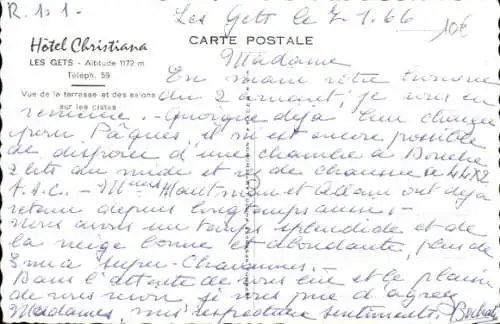 R. 1s1-
Les Gets le 7.1.66
10€
Hôtel Christiana
CARTE POSTALE
LES GETS - Altitude 1172 m
Téléph. 59
Madame
En main votre
Vue de la terrasse et des salons
sur les pistes
du 2 crt, je vous en
remercie. - Quoique déjà bien chargé
pour Pâques, il m'est encore possible
de disposer d'une chambre à Douche
2 lits du midi et rez de chaussée à 44 X 2
T.S.C. - Mmes Hautman et Adam ont déjà
retenu depuis longtemps aussi. -
nous avons un temps splendide et de
la neige bonne et abondante, plus de
3 m à super-Chavannes. -
Dans l'attente de vous lire et le plaisir
de vous revoir, je vous prie d'agréer
Mesdames, mes respectueux sentiments.